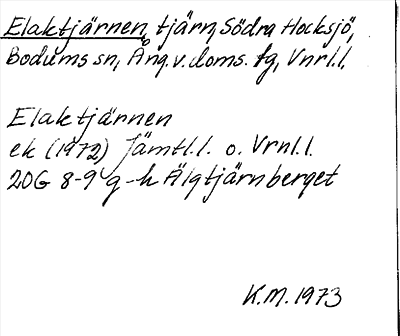 Elaktjärnen, tjärn, Södra Hocksjö,
Bodums sn, Ång.v.doms. fg, Vnrl.l.
Elaktjärnen
ek (1972) Jämtl.l. o. Vrnl.l.
20G 8-9 g-h Älgtjärnberget
K.M. 1973